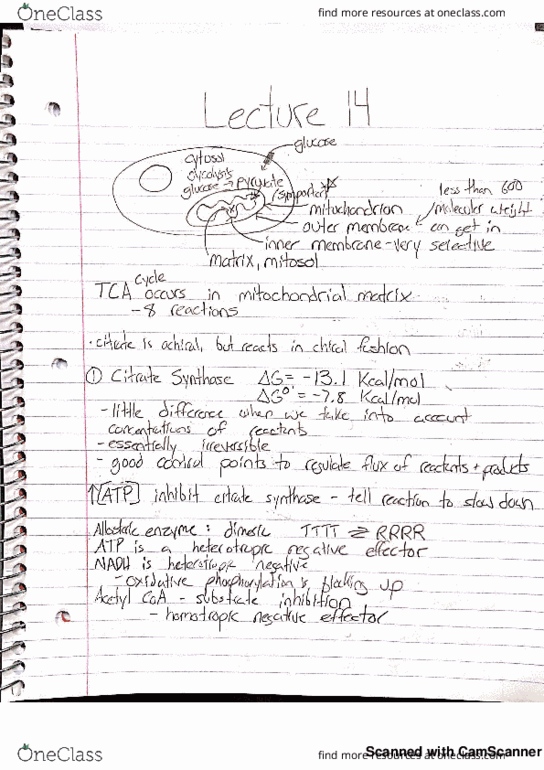 OneClass
find more resources at oneclass.com
Lecture 14
glucose
cytosol
glycolysis
glucose → pyruvate
symporter
less than 600
molecular weight
mitochondrion
outer membrane - can get in
inner membrane - very selective
matrix, mitosol
TCA cycle occurs in mitochondrial matrix
- 8 reactions
· citrate is achiral, but reacts in chiral fashion
① Citrate Synthase ΔG = -13.1 Kcal/mol
ΔG°' = -7.8 Kcal/mol
- little difference when we take into account
concentrations of reactants
- essentially irreversible
- good control points to regulate flux of reactants + products
↑[ATP] inhibit citrate synthase - tell reaction to slow down
Allosteric enzyme: dimeric TTTT ⇌ RRRR
ATP is a heterotropic negative effector
NADH is heterotropic negative
- oxidative phosphorylation is blocking up
Acetyl CoA - substrate inhibition
- homotropic negative effector
OneClass
find more resources at oneclass.com
Scanned with CamScanner